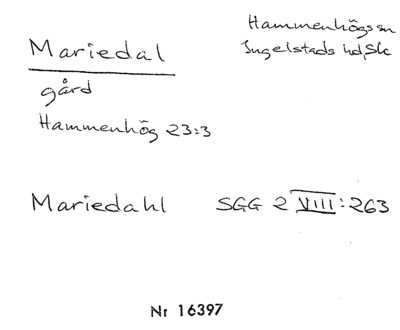 Hammenhögs sn
Mariedal
Ingelstads hd, Sk
gård
Hammenhög 23:3
Mariedahl SGG 2 VIII:263
Nr 16397